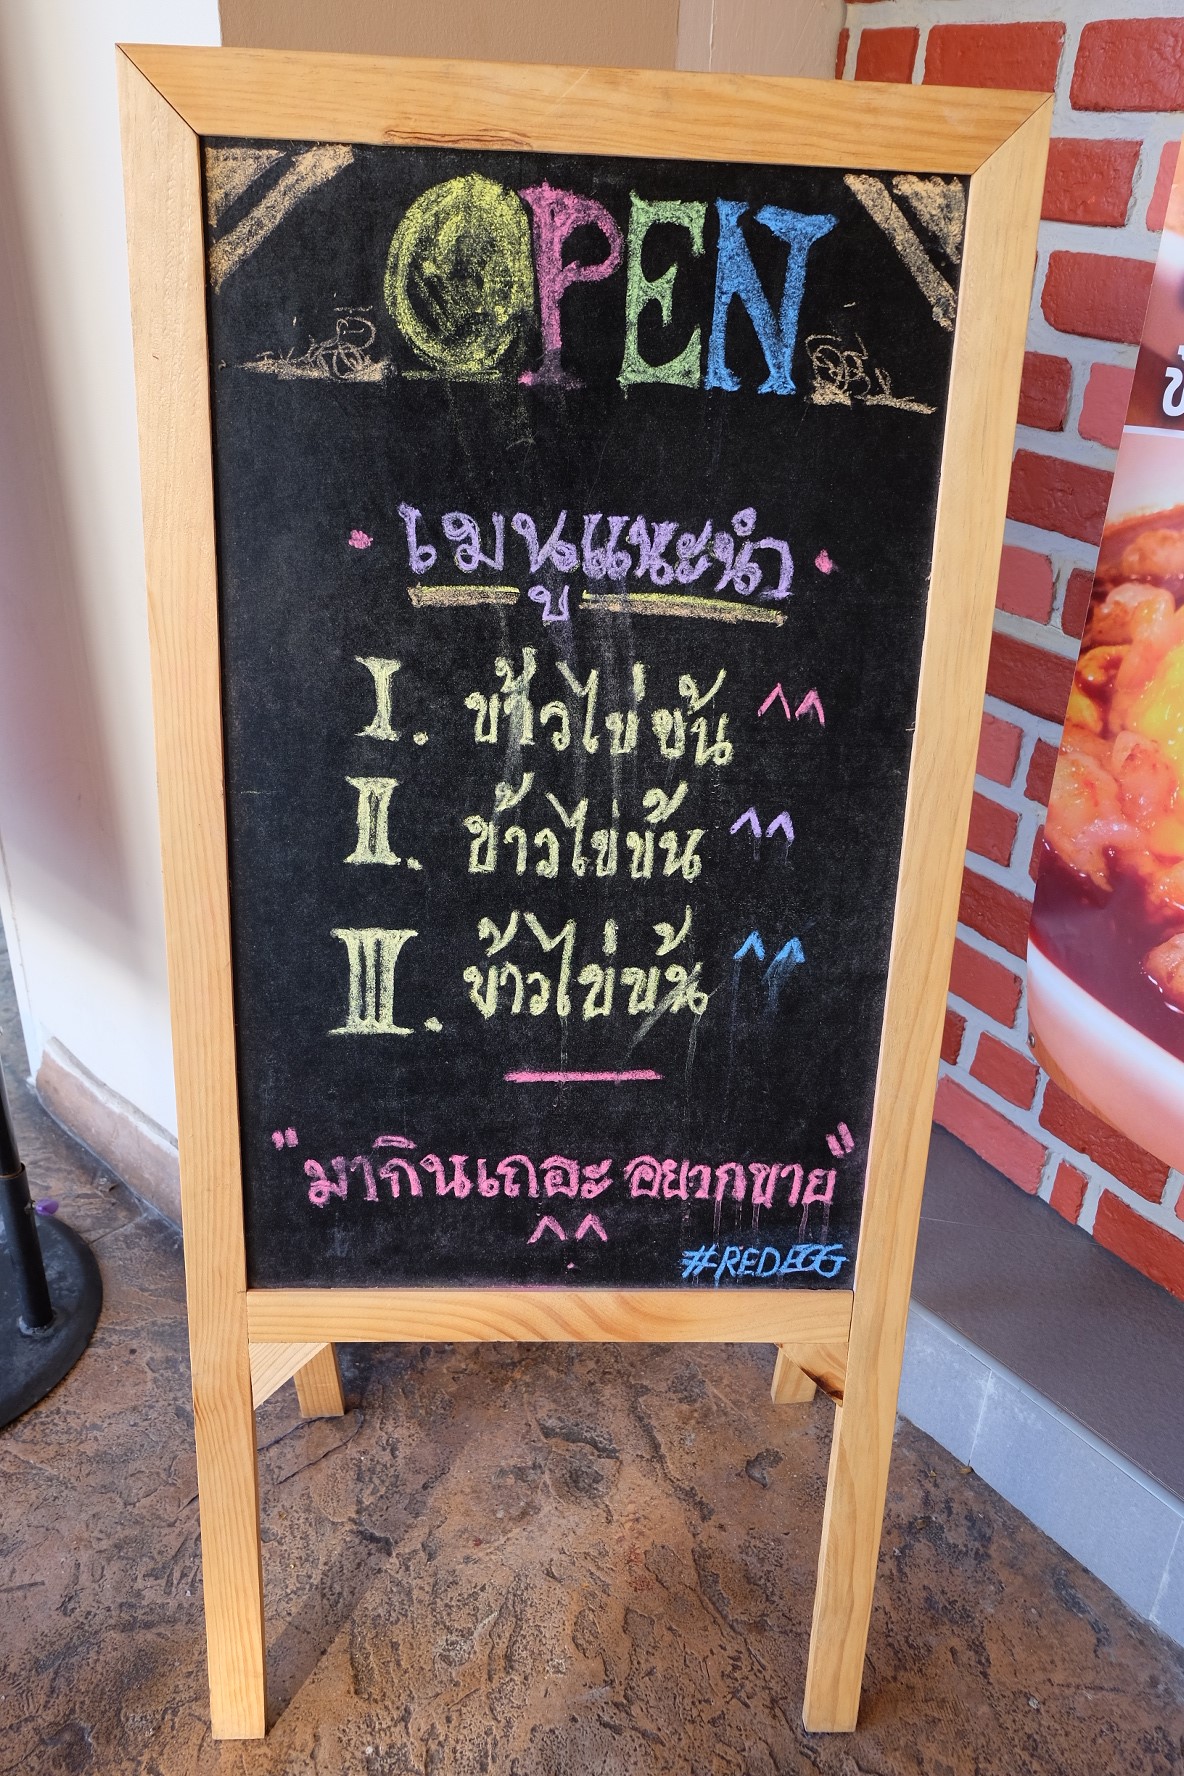 OPEN
เมนูแนะนำ
I. ข้าวไข่ข้น ^^
II. ข้าวไข่ข้น ^^
III. ข้าวไข่ข้น ^^
"มากินเถอะ อยากขาย"
^^
#REDEGG